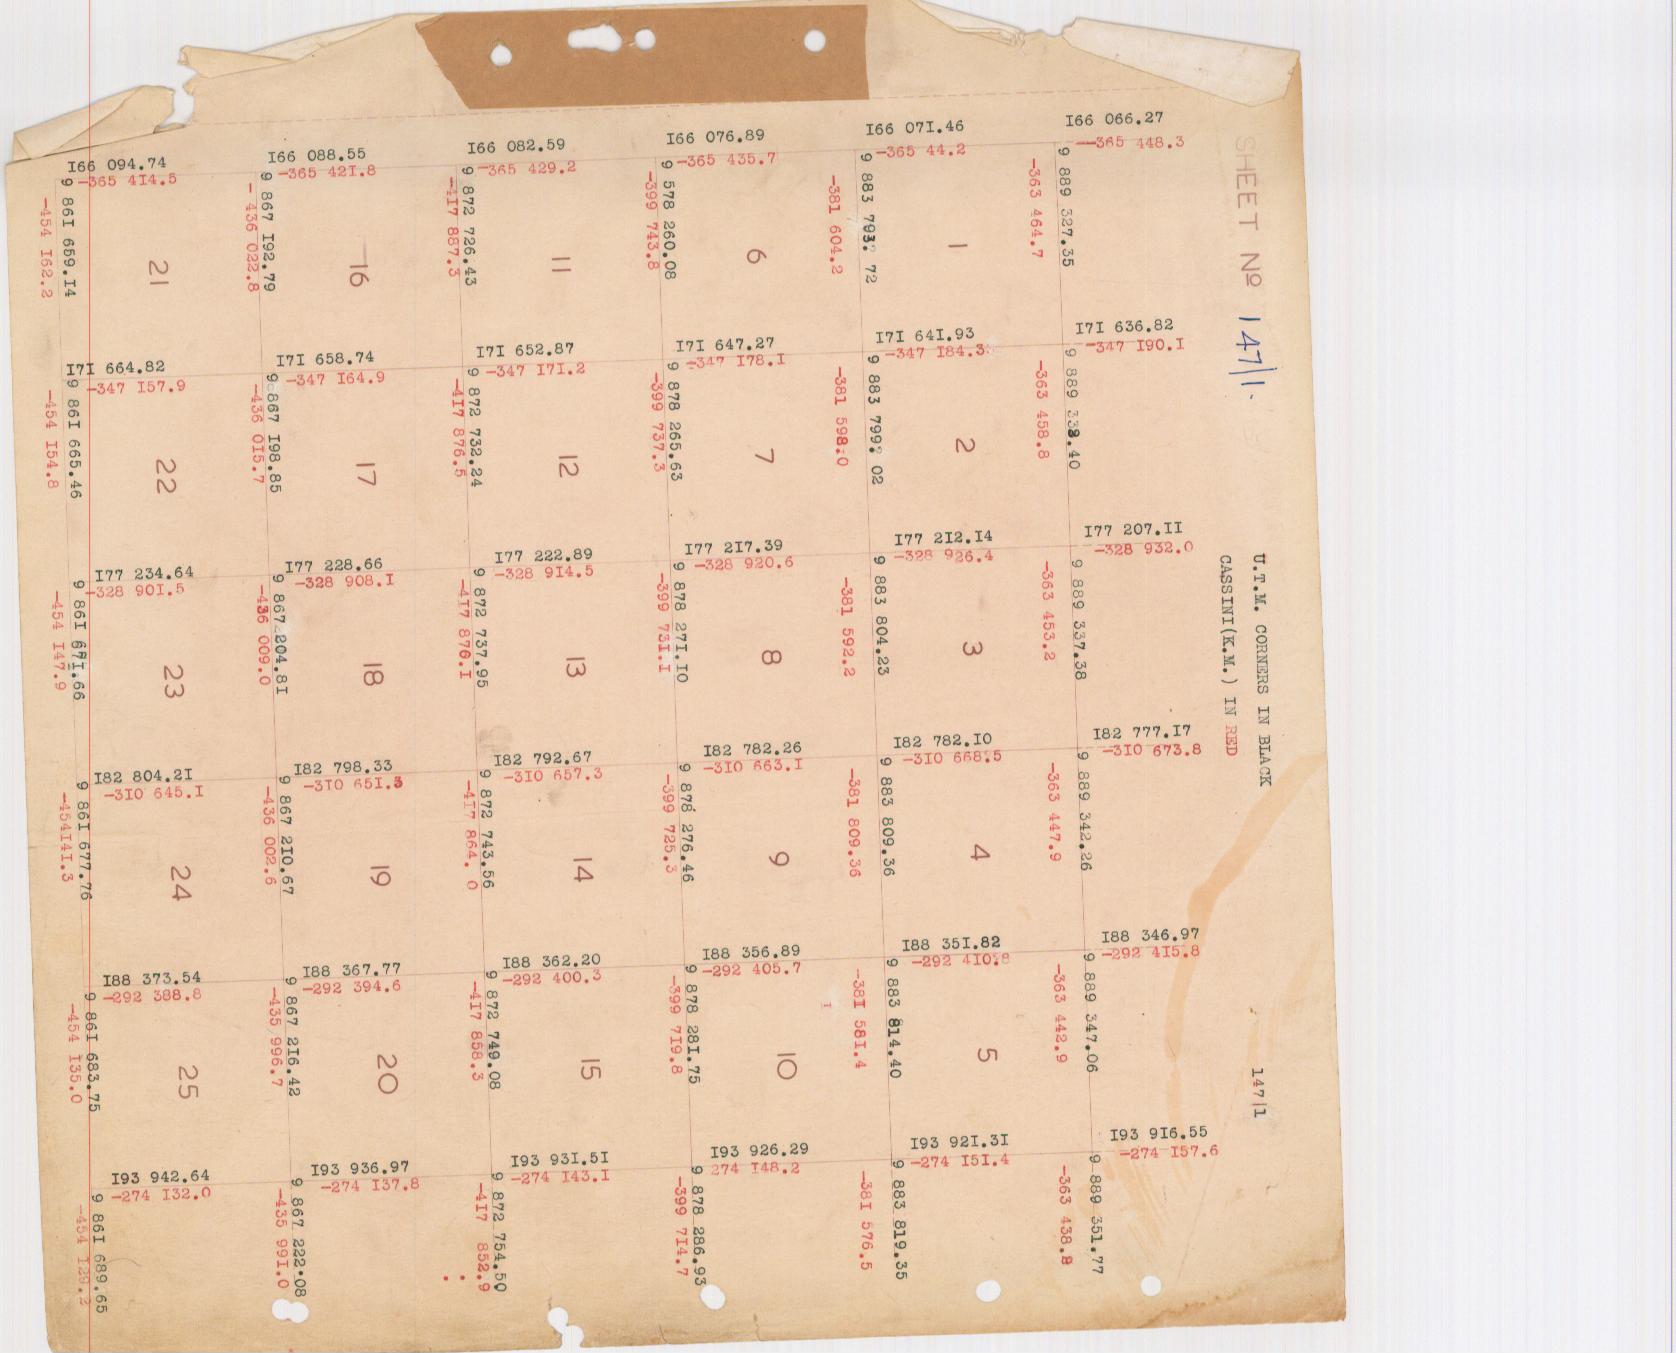 SHEET Nº 147/1.
U.T.M. CORNERS IN BLACK
CASSINI(K.M.) IN RED
147/1
I66 094.74
-365 414.5
9 861 659.I4
-454 I62.2
I66 088.55
-365 42I.8
9 867 I92.79
-436 022.8
I66 082.59
-365 429.2
9 872 726.43
-4I7 887.3
I66 076.89
-365 435.7
9 578 260.08
-399 743.8
I66 07I.46
-365 44.2
9 883 793. 72
-38I 604.2
I66 066.27
-365 448.3
9 889 327.35
-363 464.7
21
16
11
6
1
I7I 664.82
-347 I57.9
9 86I 665.46
-454 I54.8
I7I 658.74
-347 I64.9
9 867 I98.85
-436 0I5.7
I7I 652.87
-347 I7I.2
9 872 732.24
-4I7 876.5
I7I 647.27
-347 I78.I
9 878 265.63
-399 737.3
I7I 64I.93
-347 I84.3
9 883 799. 02
-38I 598.0
I7I 636.82
-347 I90.I
9 889 332.40
-363 458.8
22
17
12
7
2
I77 234.64
-328 90I.5
9 86I 67I.66
-454 I47.9
I77 228.66
-328 908.I
9 867 204.8I
-436 009.0
I77 222.89
-328 9I4.5
9 872 737.95
-4I7 870.I
I77 2I7.39
-328 920.6
9 878 27I.I0
-399 73I.I
I77 2I2.I4
-328 926.4
9 883 804.23
-38I 592.2
I77 207.II
-328 932.0
9 889 337.38
-363 453.2
23
18
13
8
3
I82 804.2I
-3I0 645.I
9 86I 677.76
-454I4I.3
I82 798.33
-3I0 65I.3
9 867 2I0.67
-436 002.6
I82 792.67
-3I0 657.3
9 872 743.56
-4I7 864. 0
I82 782.26
-3I0 663.I
9 878 276.46
-399 725.3
I82 782.I0
-3I0 668.5
9 883 809.36
-38I 809.36
I82 777.I7
-3I0 673.8
9 889 342.26
-363 447.9
24
19
14
9
4
I88 373.54
-292 388.8
9 86I 683.75
-454 I35.0
I88 367.77
-292 394.6
9 867 2I6.42
-435 996.7
I88 362.20
-292 400.3
9 872 749.08
-4I7 858.3
I88 356.89
-292 405.7
9 878 28I.75
-399 7I9.8
I88 35I.82
-292 4I0.8
9 883 8I4.40
-38I 58I.4
I88 346.97
-292 4I5.8
9 889 347.06
-363 442.9
25
20
15
10
5
I93 942.64
-274 I32.0
9 86I 689.65
-454 I29.2
I93 936.97
-274 I37.8
9 867 222.08
-435 99I.0
I93 93I.5I
-274 I43.I
9 872 754.50
-4I7 852.9
I93 926.29
274 I48.2
9 878 286.93
-399 7I4.7
I93 92I.3I
-274 I5I.4
9 883 8I9.35
-38I 576.5
I93 9I6.55
-274 I57.6
9 889 35I.77
-363 438.8